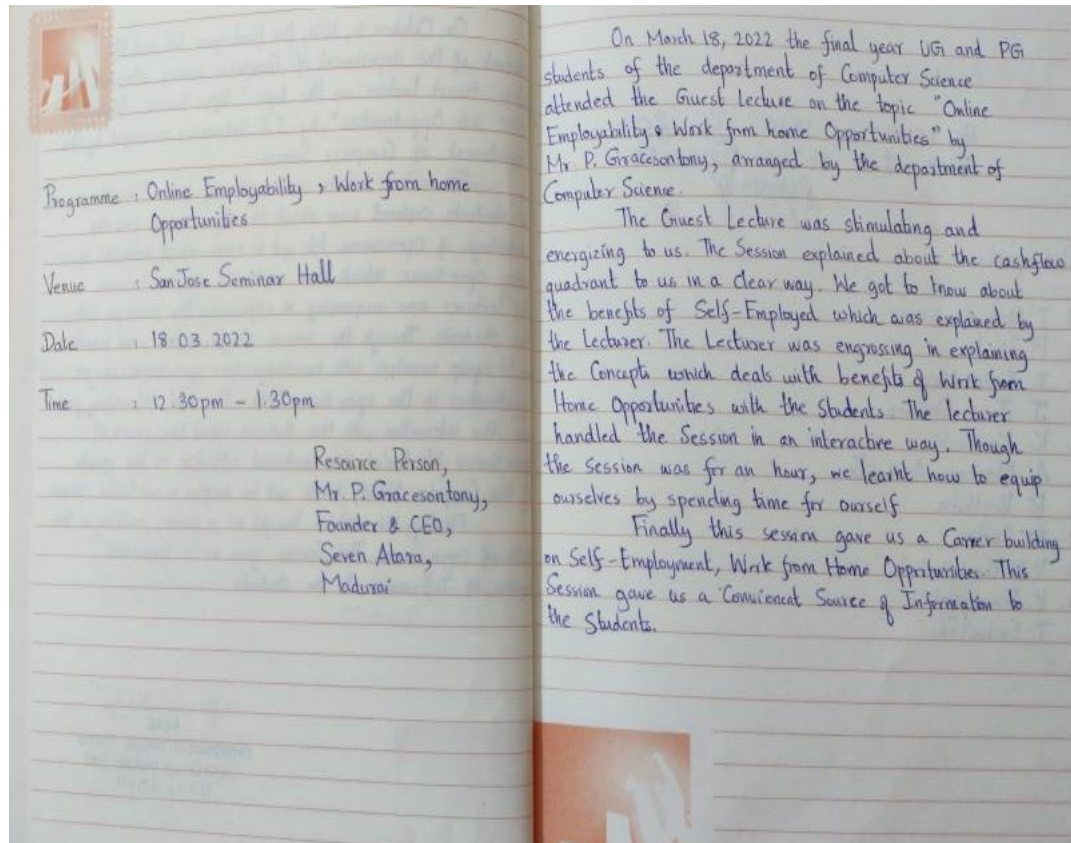 Programme : Online Employability , Work from home
Opportunities
Venue : San Jose Seminar Hall
Date : 18.03.2022
Time : 12.30pm - 1.30pm
Resource Person,
Mr. P. Gracesontony,
Founder & CEO,
Seven Atara,
Madurai
On March 18, 2022 the final year UG and PG
students of the department of Computer Science
attended the Guest lecture on the topic "Online
Employability & Work from home Opportunities" by
Mr. P. Gracesontony, arranged by the department of
Computer Science.
The Guest Lecture was stimulating and
energizing to us. The Session explained about the cashflow
quadrant to us in a clear way. We got to know about
the benefits of Self-Employed which was explained by
the Lecturer. The Lecturer was engrossing in explaining
the Concepts which deals with benefits of Work from
Home Opportunities with the Students. The lecturer
handled the Session in an interactive way. Though
the session was for an hour, we learnt how to equip
ourselves by spending time for ourself
Finally this session gave us a Career building
on Self-Employment, Work from Home Opportunities. This
Session gave us a Convienent Source of Information to
the Students.